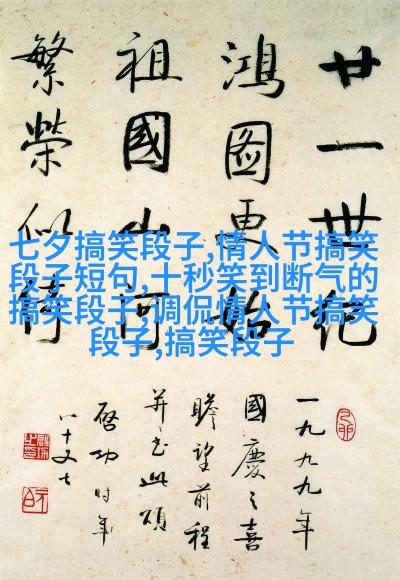 廿一世纪
鸿图更始
祖國山河
繁榮似
七夕搞笑段子,情人节搞笑
段子短句,十秒笑到断气的
搞笑段子,调侃情人节搞笑
段子,搞笑段子
一九九九年
國慶之喜
瞻望前程
并书此颂
啓功时年
八十又七